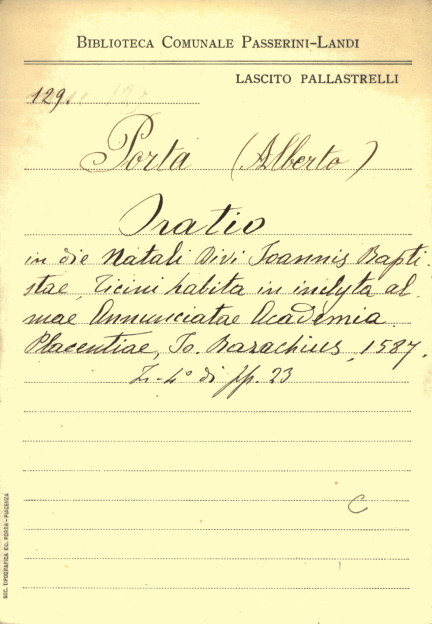 BIBLIOTECA COMUNALE PASSERINI-LANDI
LASCITO PALLASTRELLI
129.
Porta (Alberto)
Oratio
in die Natali Divi Joannis Bapti-
stae, Ticini habita in inclyta al-
mae Annunciatae Academia.
Placentiae, Jo. Barachius, 1587.
In-4° di pp. 23
C
SOC. TIPOGRAFICA ED. PORTA-PIACENZA